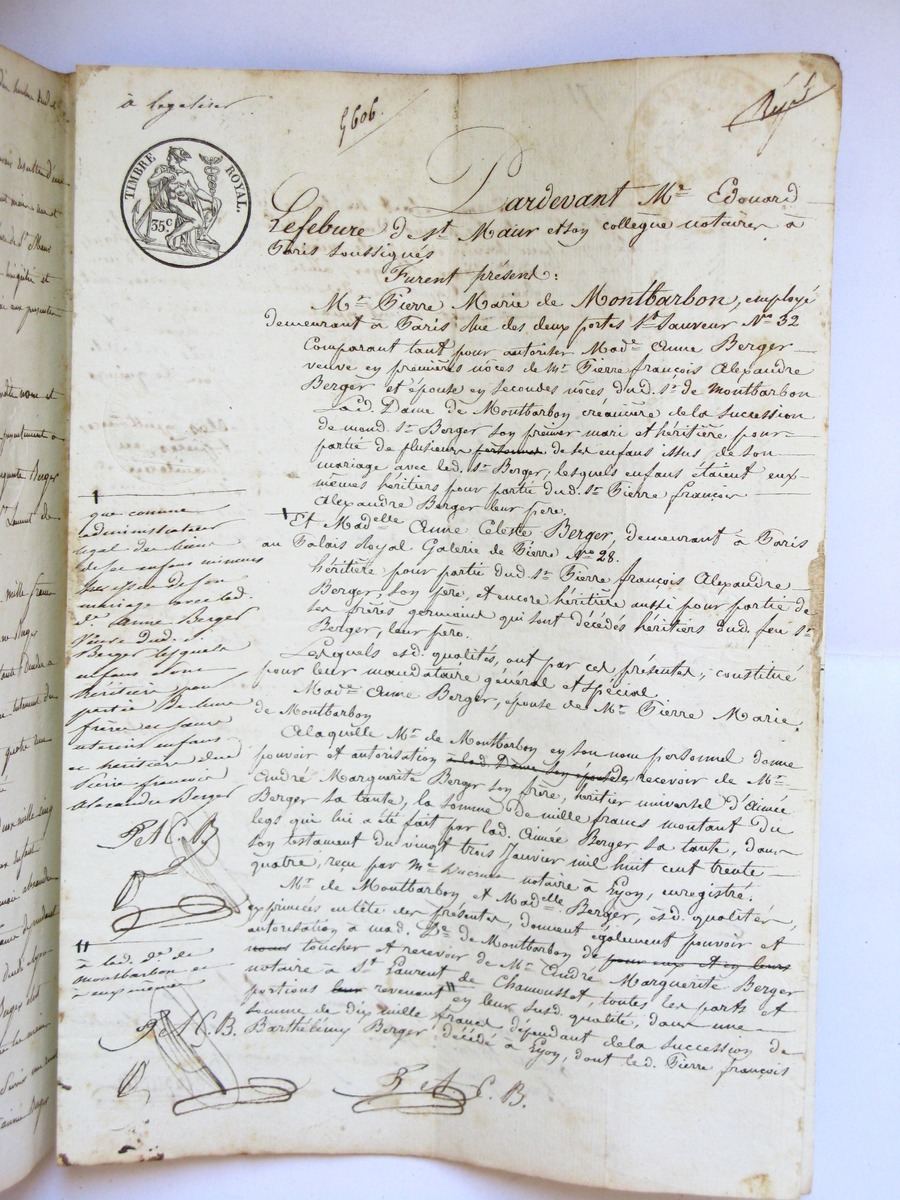 à legaliser
5606.
TIMBRE ROYAL.
35c
Pardevant Me Edouard
Lefebure de St Maur et son collegue notaires à
Paris soussignés
Furent présens:
Mr Pierre Marie de Montbarbon, employé
demeurant à Paris Rue des deux portes St Sauveur No 32
Comparant tant pour autoriser Made Anne Berger
veuve en premières nôces de Mr Pierre françois Alexandre
Berger et épouse en secondes nôces dud. Sr de Montbarbon
Lad. Dame de Montbarbon créancière de la succession
de mond. Sr Berger son premier mari et héritière pour
partie de plusieurs personnes de ses enfans issus de son
mariage avec led. Sr Berger, lesquels enfans étaient eux-
mêmes héritiers pour partie dud. Sr Pierre françois
Alexandre Berger leur père.
Et Madelle Anne Celeste Berger, demeurant à Paris
au Palais Royal Galerie de Pierre No 28.
héritière pour partie dud. Sr Pierre françois Alexandre
Berger, son père, et encore héritière aussi pour partie de
ses frères germains qui sont décédés héritiers dud. feu Sr
Berger, leur père.
Lesquels esd. qualités, ont par ces présentes, constitué
pour leur mandataire général et spécial.
Made Anne Berger, épouse de Mr Pierre Marie
de Montbarbon
A laquelle Mr de Montbarbon en son nom personnel donne
pouvoir et autorisation à lad. Dame son épouse, recevoir de Mr
André Marguerite Berger son frère, héritier universel d'Aimée
Berger sa tante, la somme de mille francs montant du
legs qui lui a été fait par lad. Aimée Berger sa tante, dans
son testament du vingt trois Janvier mil huit cent trente
quatre, reçu par Me Ducruet notaire à Lyon, enregistré.
Mr de Montbarbon, et Madelle Berger, esd. qualités,
exprimées en tête des présentes, donnent également pouvoir et
autorisation à mad. De de Montbarbon de pour eux et en leurs
noms toucher et recevoir de Mr André Marguerite Berger
notaire à St Laurent de Chamousset, toutes les parts et
portions leur revenant " en leur susd. qualité, dans une
somme de dix mille francs dépendant de la succession de
Barthélemy Berger décédé à Lyon, dont led. Pierre françois
que comme
administrateur
légal des biens
de ses enfans mineurs
issus de son
mariage avec lad.
De Anne Berger
Veuve dud. Sr
Berger lesquels
enfans sont
héritiers pour
partie de leurs
frères
utérins enfans
et héritiers dud.
Pierre francois
Alexandre Berger
P et A C. B
" à lad. De de
montbarbon et
à eux mêmes
P et A C. B.
P et A C. B.